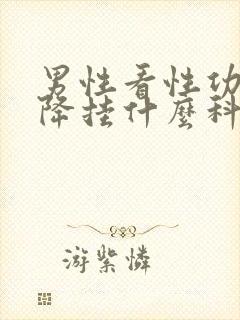 男性看性功
降挂什麼科
游紫憐